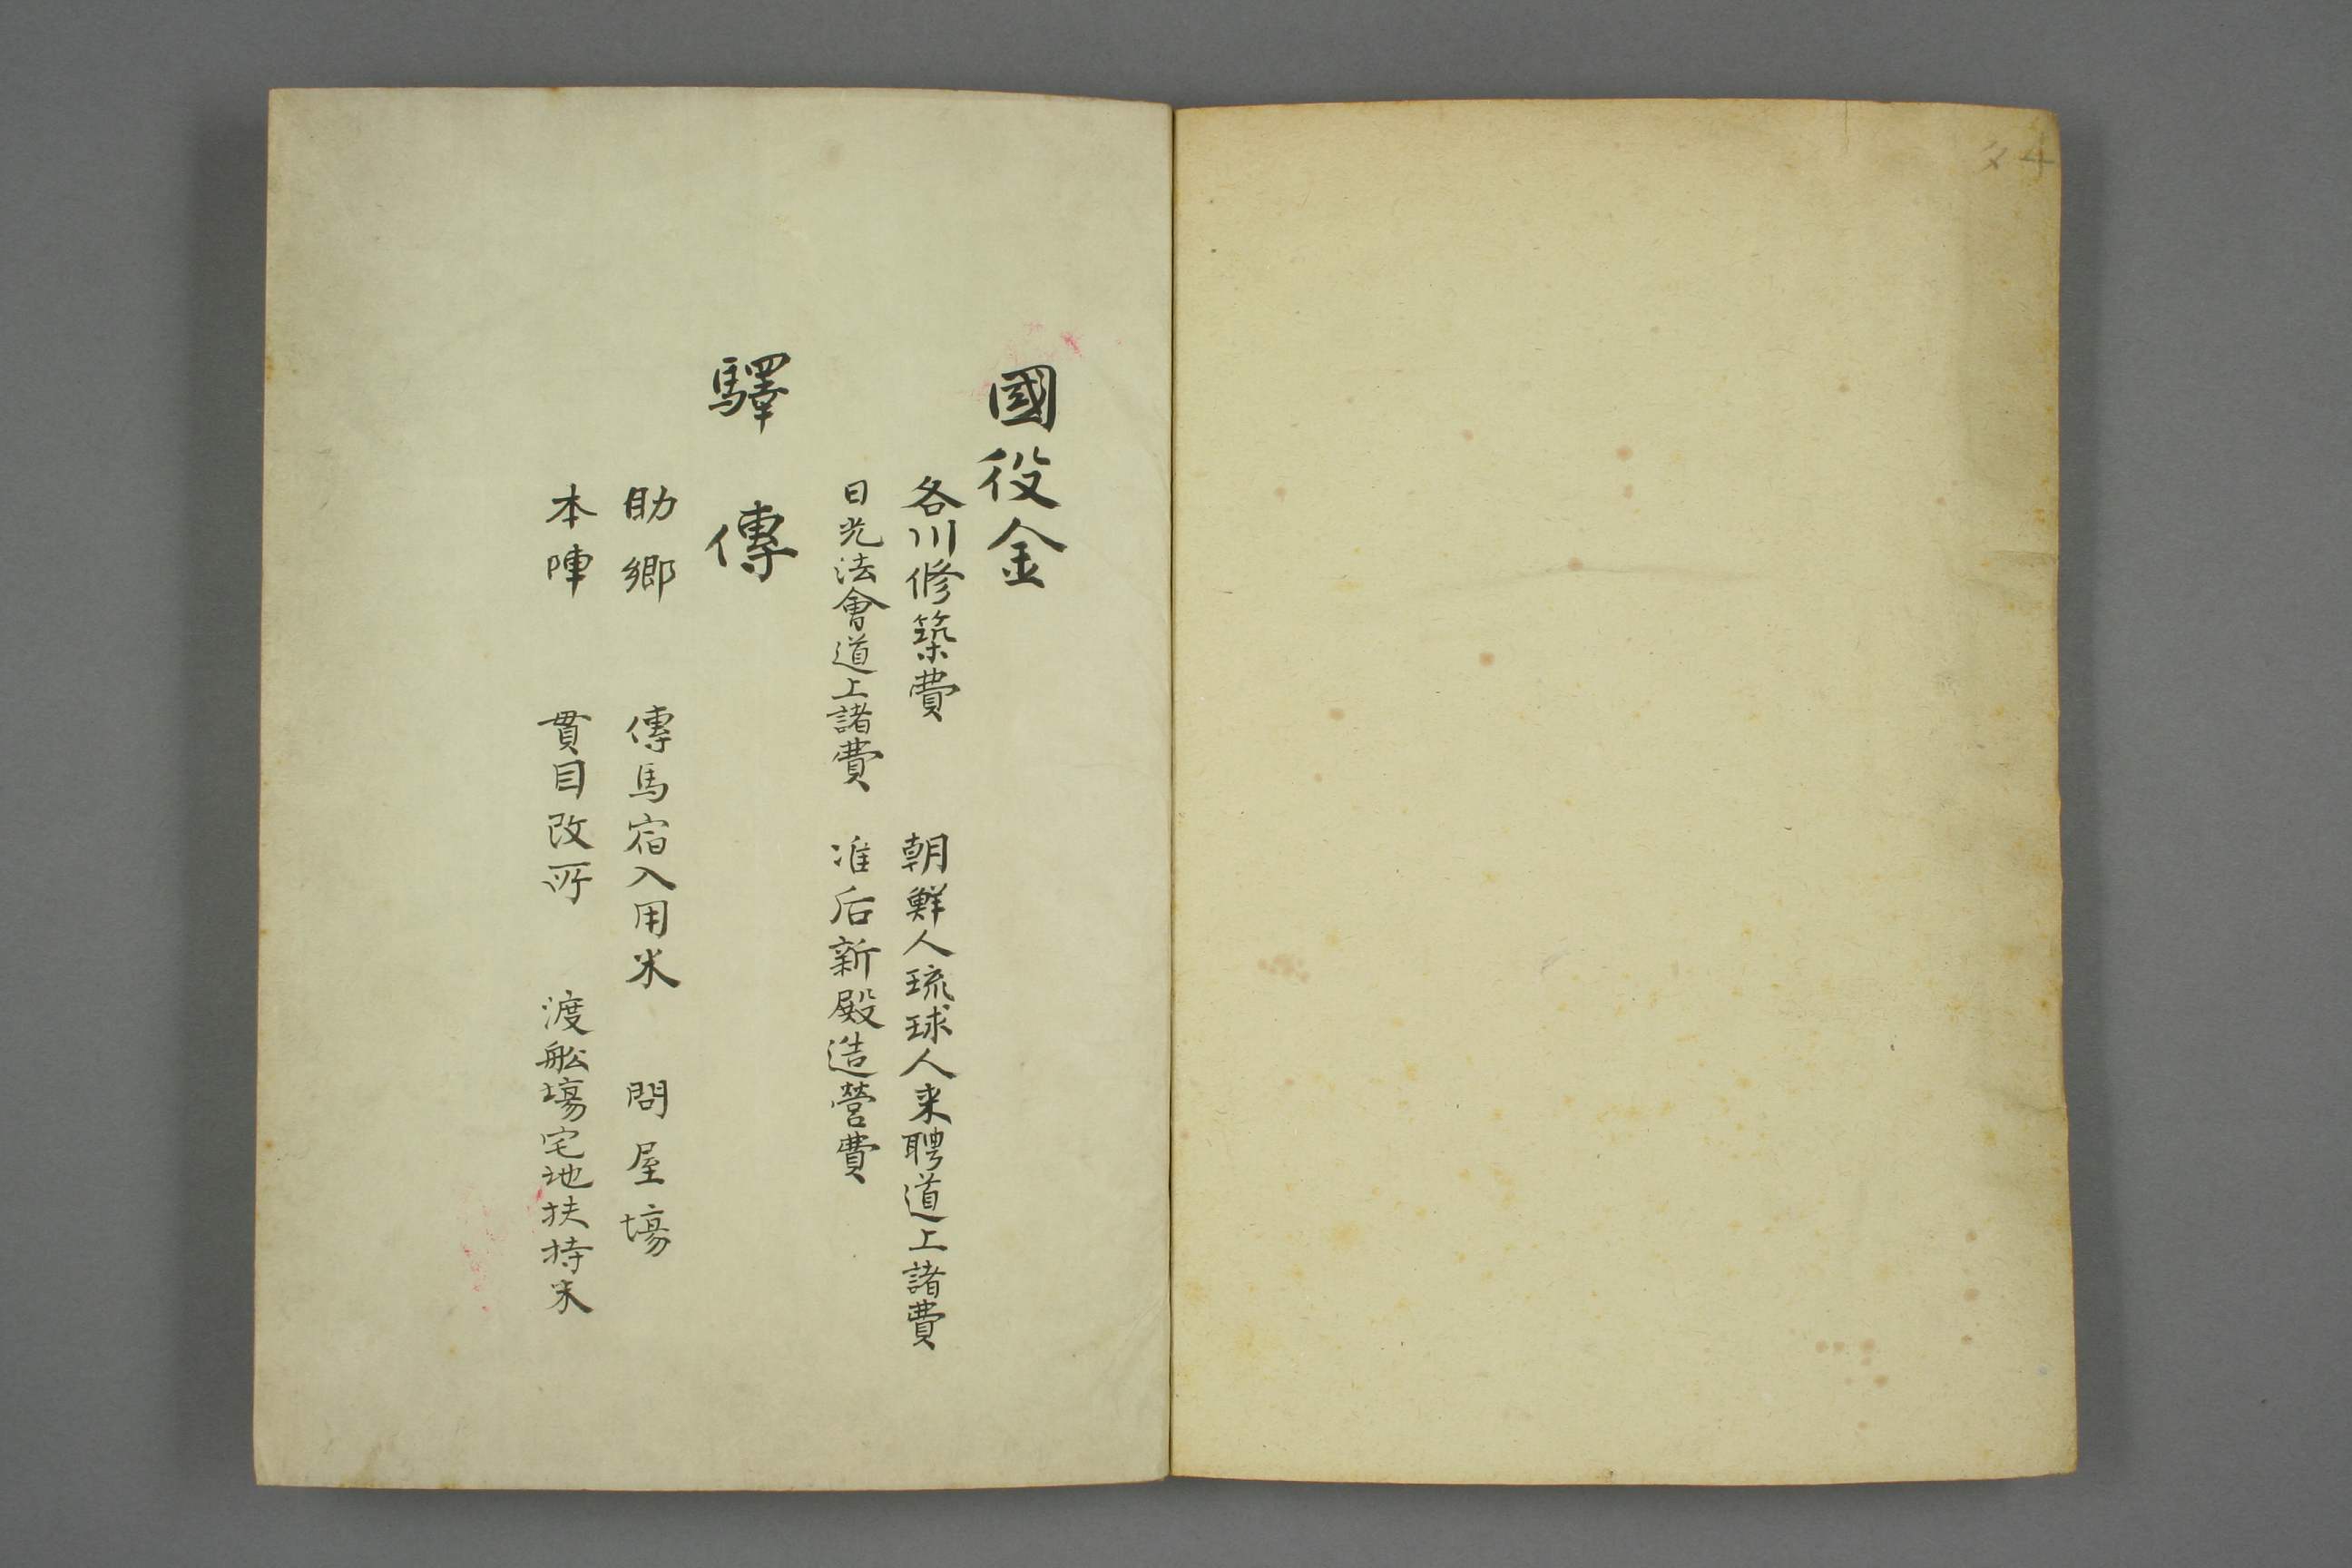 國役金
各川修築費　朝鮮人琉球人来聘道上諸費
日光法會道上諸費　准后新殿造營費
驛傳
助鄉　傳馬宿入用米　問屋塲
本陣　貫目改所　渡舩塲宅地扶持米